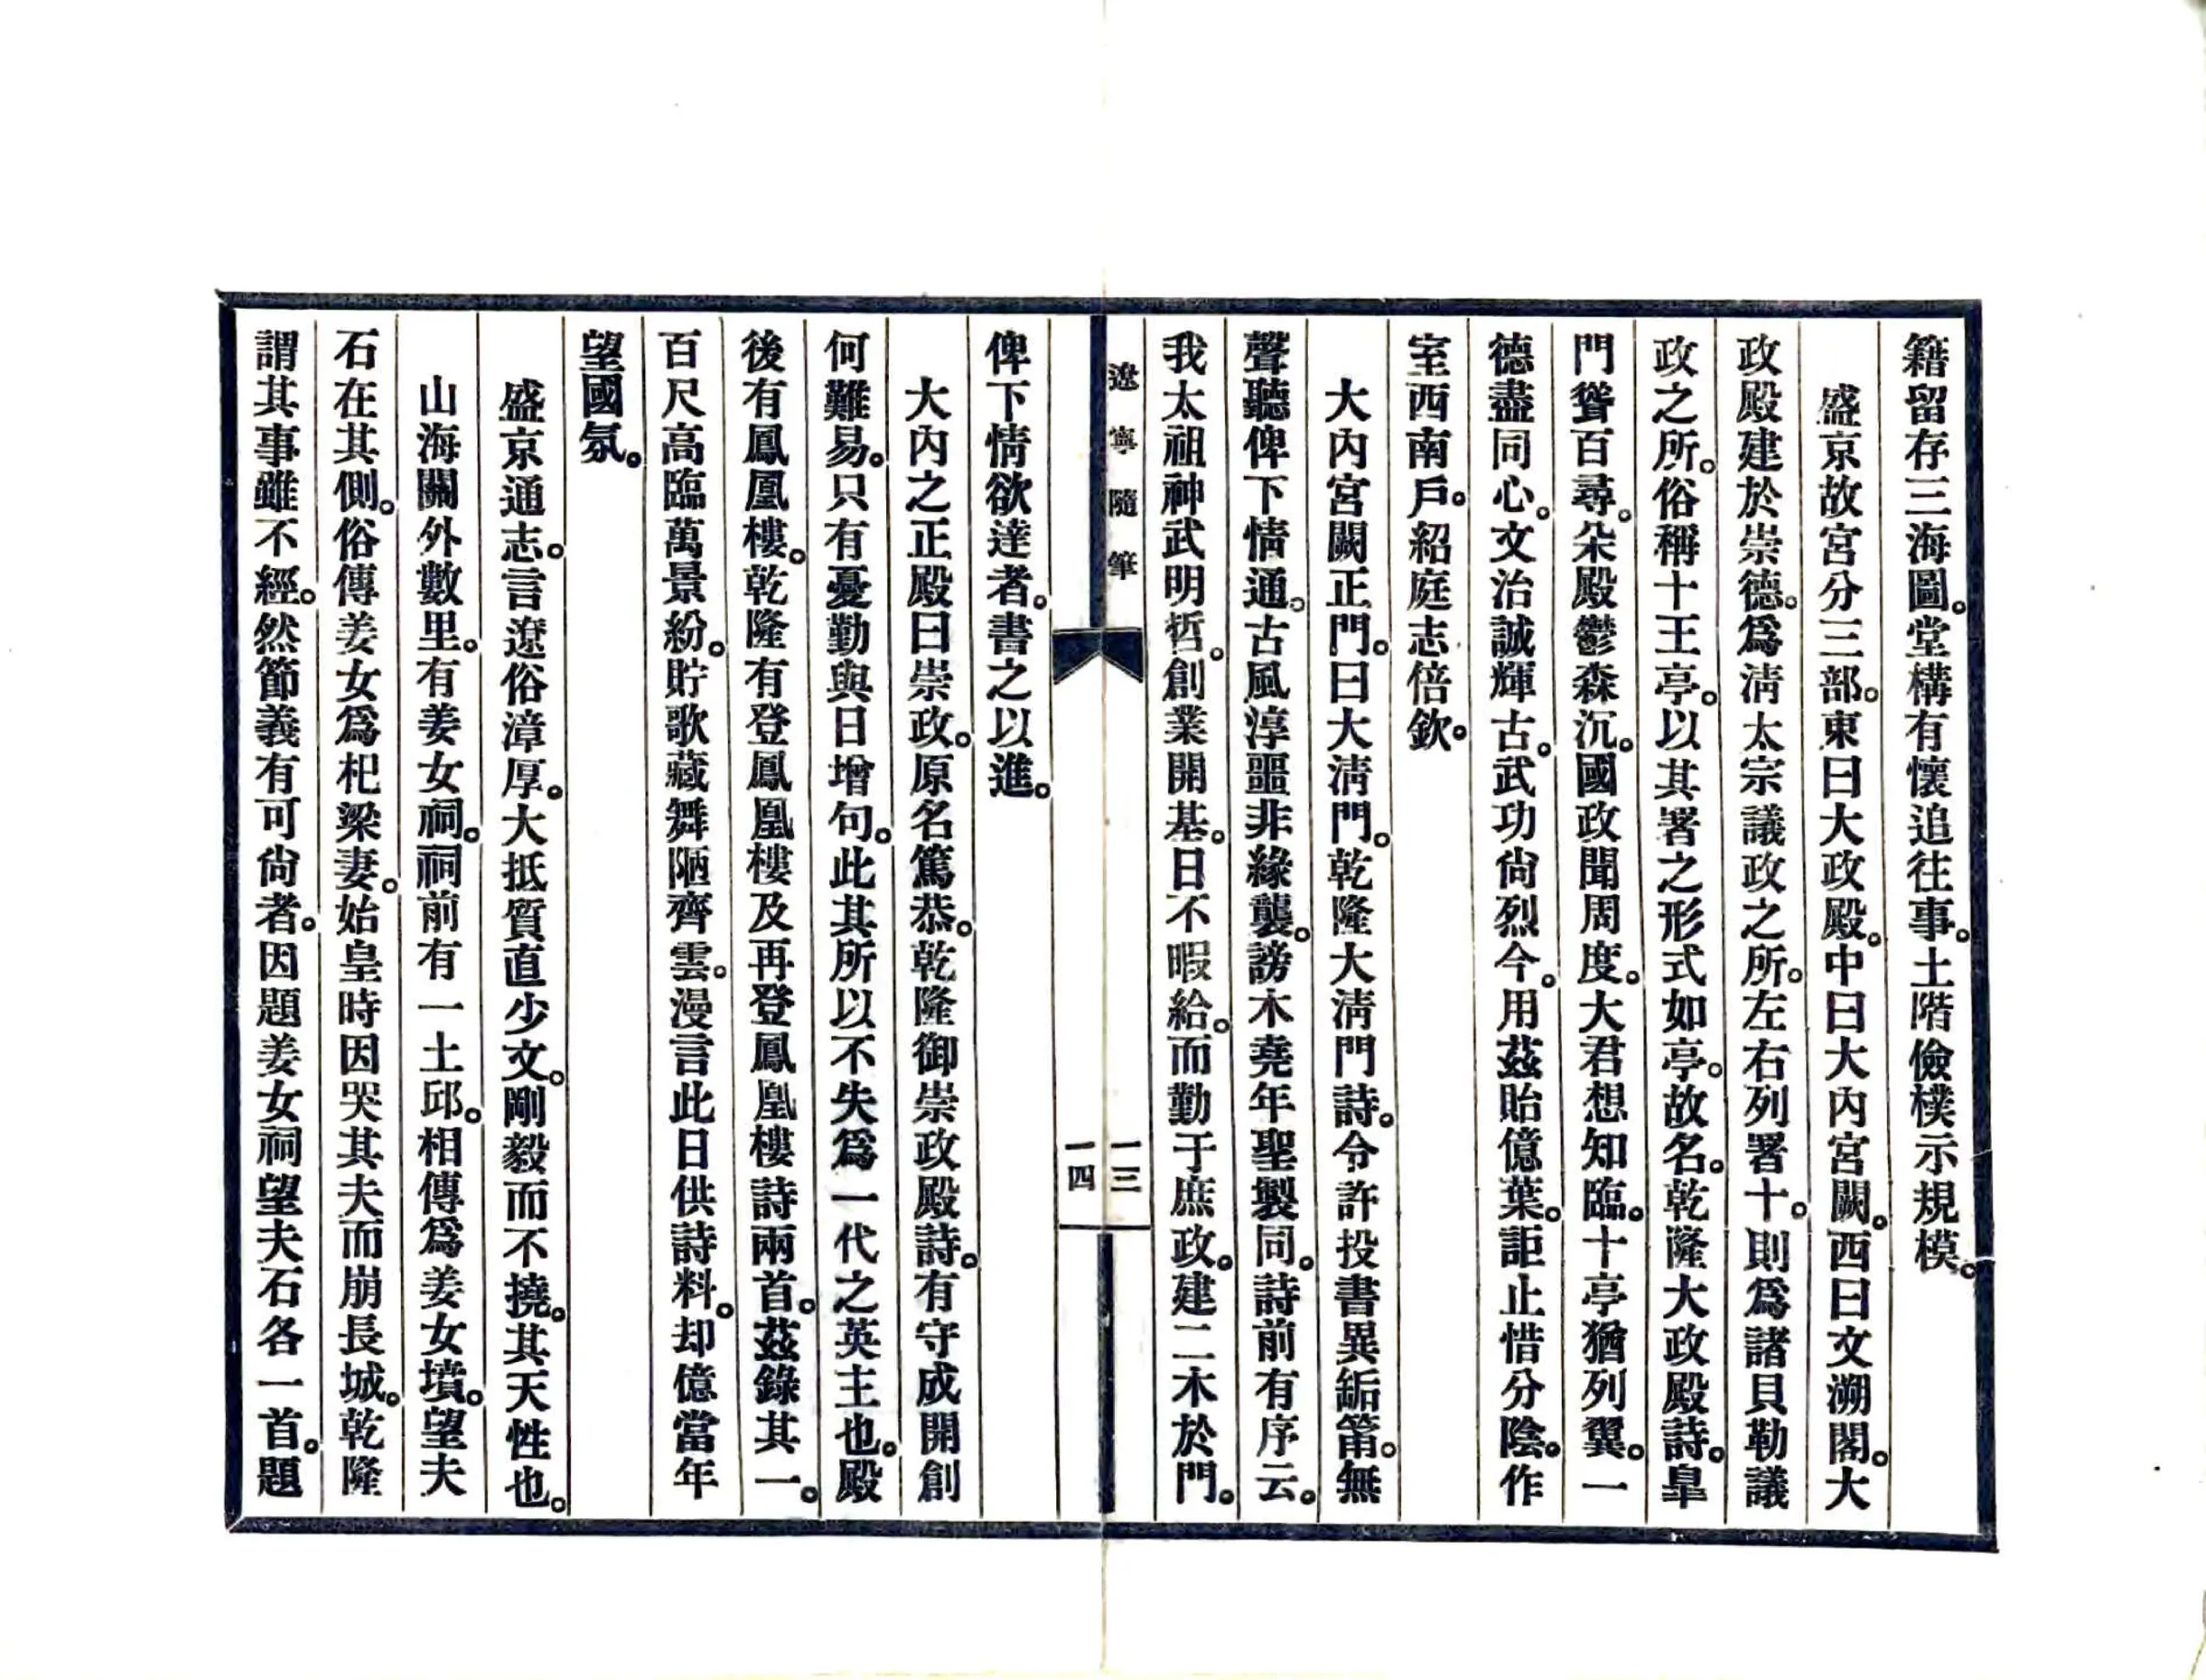 籍留存三海圖。堂構有懷追往事。土階儉樸示規模。
盛京故宮分三部。東曰大政殿。中曰大內宮闕。西曰文溯閣。大
政殿建於崇德。爲淸太宗議政之所。左右列署十。則爲諸貝勒議
政之所。俗稱十王亭。以其署之形式如亭。故名。乾隆大政殿詩。臯
門聳百尋。朵殿鬱森沉。國政聞周度。大君想知臨。十亭猶列翼。一
德盡同心。文治誠輝古。武功尙烈今。用茲貽億葉。詎止惜分陰。作
室西南戶。紹庭志倍欽。
大內宮闕正門。曰大淸門。乾隆大淸門詩。令許投書異缿筩。無
聲聽俾下情通。古風淳噩非緣襲。謗木堯年聖製同。詩前有序云。
我太祖神武明哲。創業開基。日不暇給。而勤于庶政。建二木於門。
遼寧隨筆
一三
一四
俾下情欲達者。書之以進。
大內之正殿曰崇政。原名篤恭。乾隆御崇政殿詩。有守成開創
何難易。只有憂勤與日增句。此其所以不失爲一代之英主也。殿
後有鳳凰樓。乾隆有登鳳凰樓及再登鳳凰樓詩兩首。茲錄其一。
百尺高臨萬景紛。貯歌藏舞陋齊雲。漫言此日供詩料。却億當年
望國氛。
盛京通志。言遼俗漳厚。大抵質直少文。剛毅而不撓。其天性也。
山海關外數里。有姜女祠。祠前有一土邱。相傳爲姜女墳。望夫
石在其側。俗傳姜女爲杞梁妻。始皇時因哭其夫而崩長城。乾隆
謂其事雖不經。然節義有可尙者。因題姜女祠望夫石各一首。題